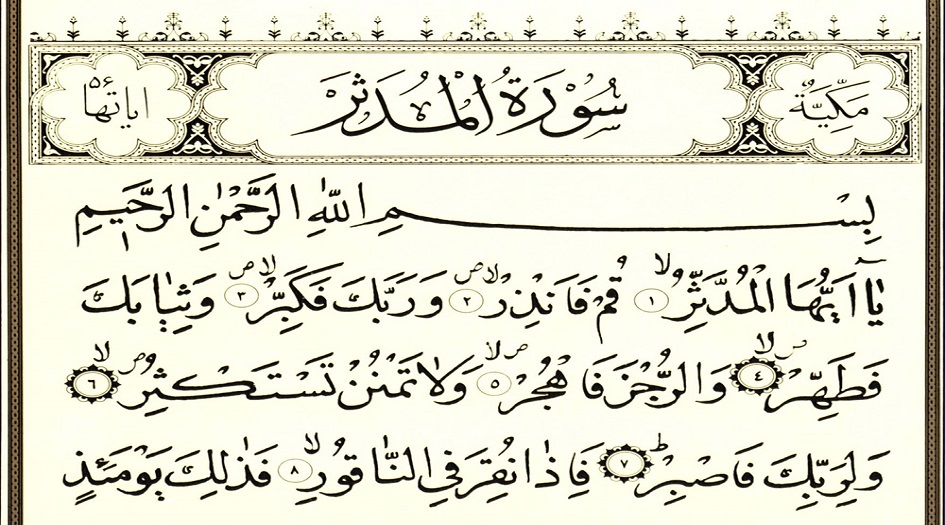 مَكِّيَّةٌ سُورَةُ الْمُدَّثِّرَ اٰيَاتُهَا ٥٦
بِسْمِ اللّٰهِ الرَّحْمٰنِ الرَّحٖيمِ
يَٓا اَيُّهَا الْمُدَّثِّرُۙ ﴿١﴾ قُمْ فَاَنْذِرْۙ ﴿٢﴾ وَرَبَّكَ فَكَبِّرْۙ ﴿٣﴾ وَثِيَابَكَ
فَطَهِّرْۙ ﴿٤﴾ وَالرُّجْزَ فَاهْجُرْۙ ﴿٥﴾ وَلَا تَمْنُنْ تَسْتَكْثِرُۙ ﴿٦﴾
وَلِرَبِّكَ فَاصْبِرْۜ ﴿٧﴾ فَاِذَا نُقِرَ فِي النَّاقُورِۙ ﴿٨﴾ فَذٰلِكَ يَوْمَئِذٍ